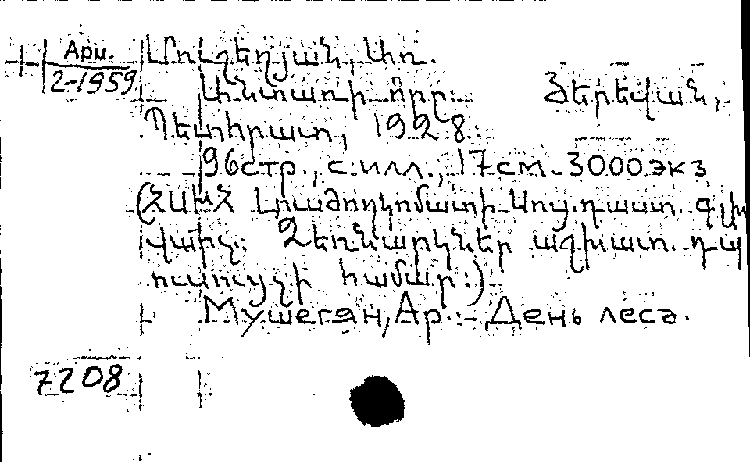 Арм.
2-1959
Մուշեղյան, Առ.
Անտառի օրը. Յերեվան,
Պետհրատ, 1928
96стр., с илл., 17см. 3000экз
(ՀՍԽՀ Լուսժողկոմատի Սոց.դաստ. գլխ
վարչ. Ձեռնարկներ աշխատ. դպ
ուսուցչի համար.)
Мушегян, Ар. - День леса.
7208